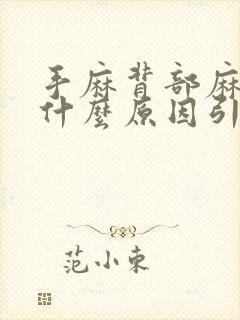 手麻背部麻
什麼原因引
范小東